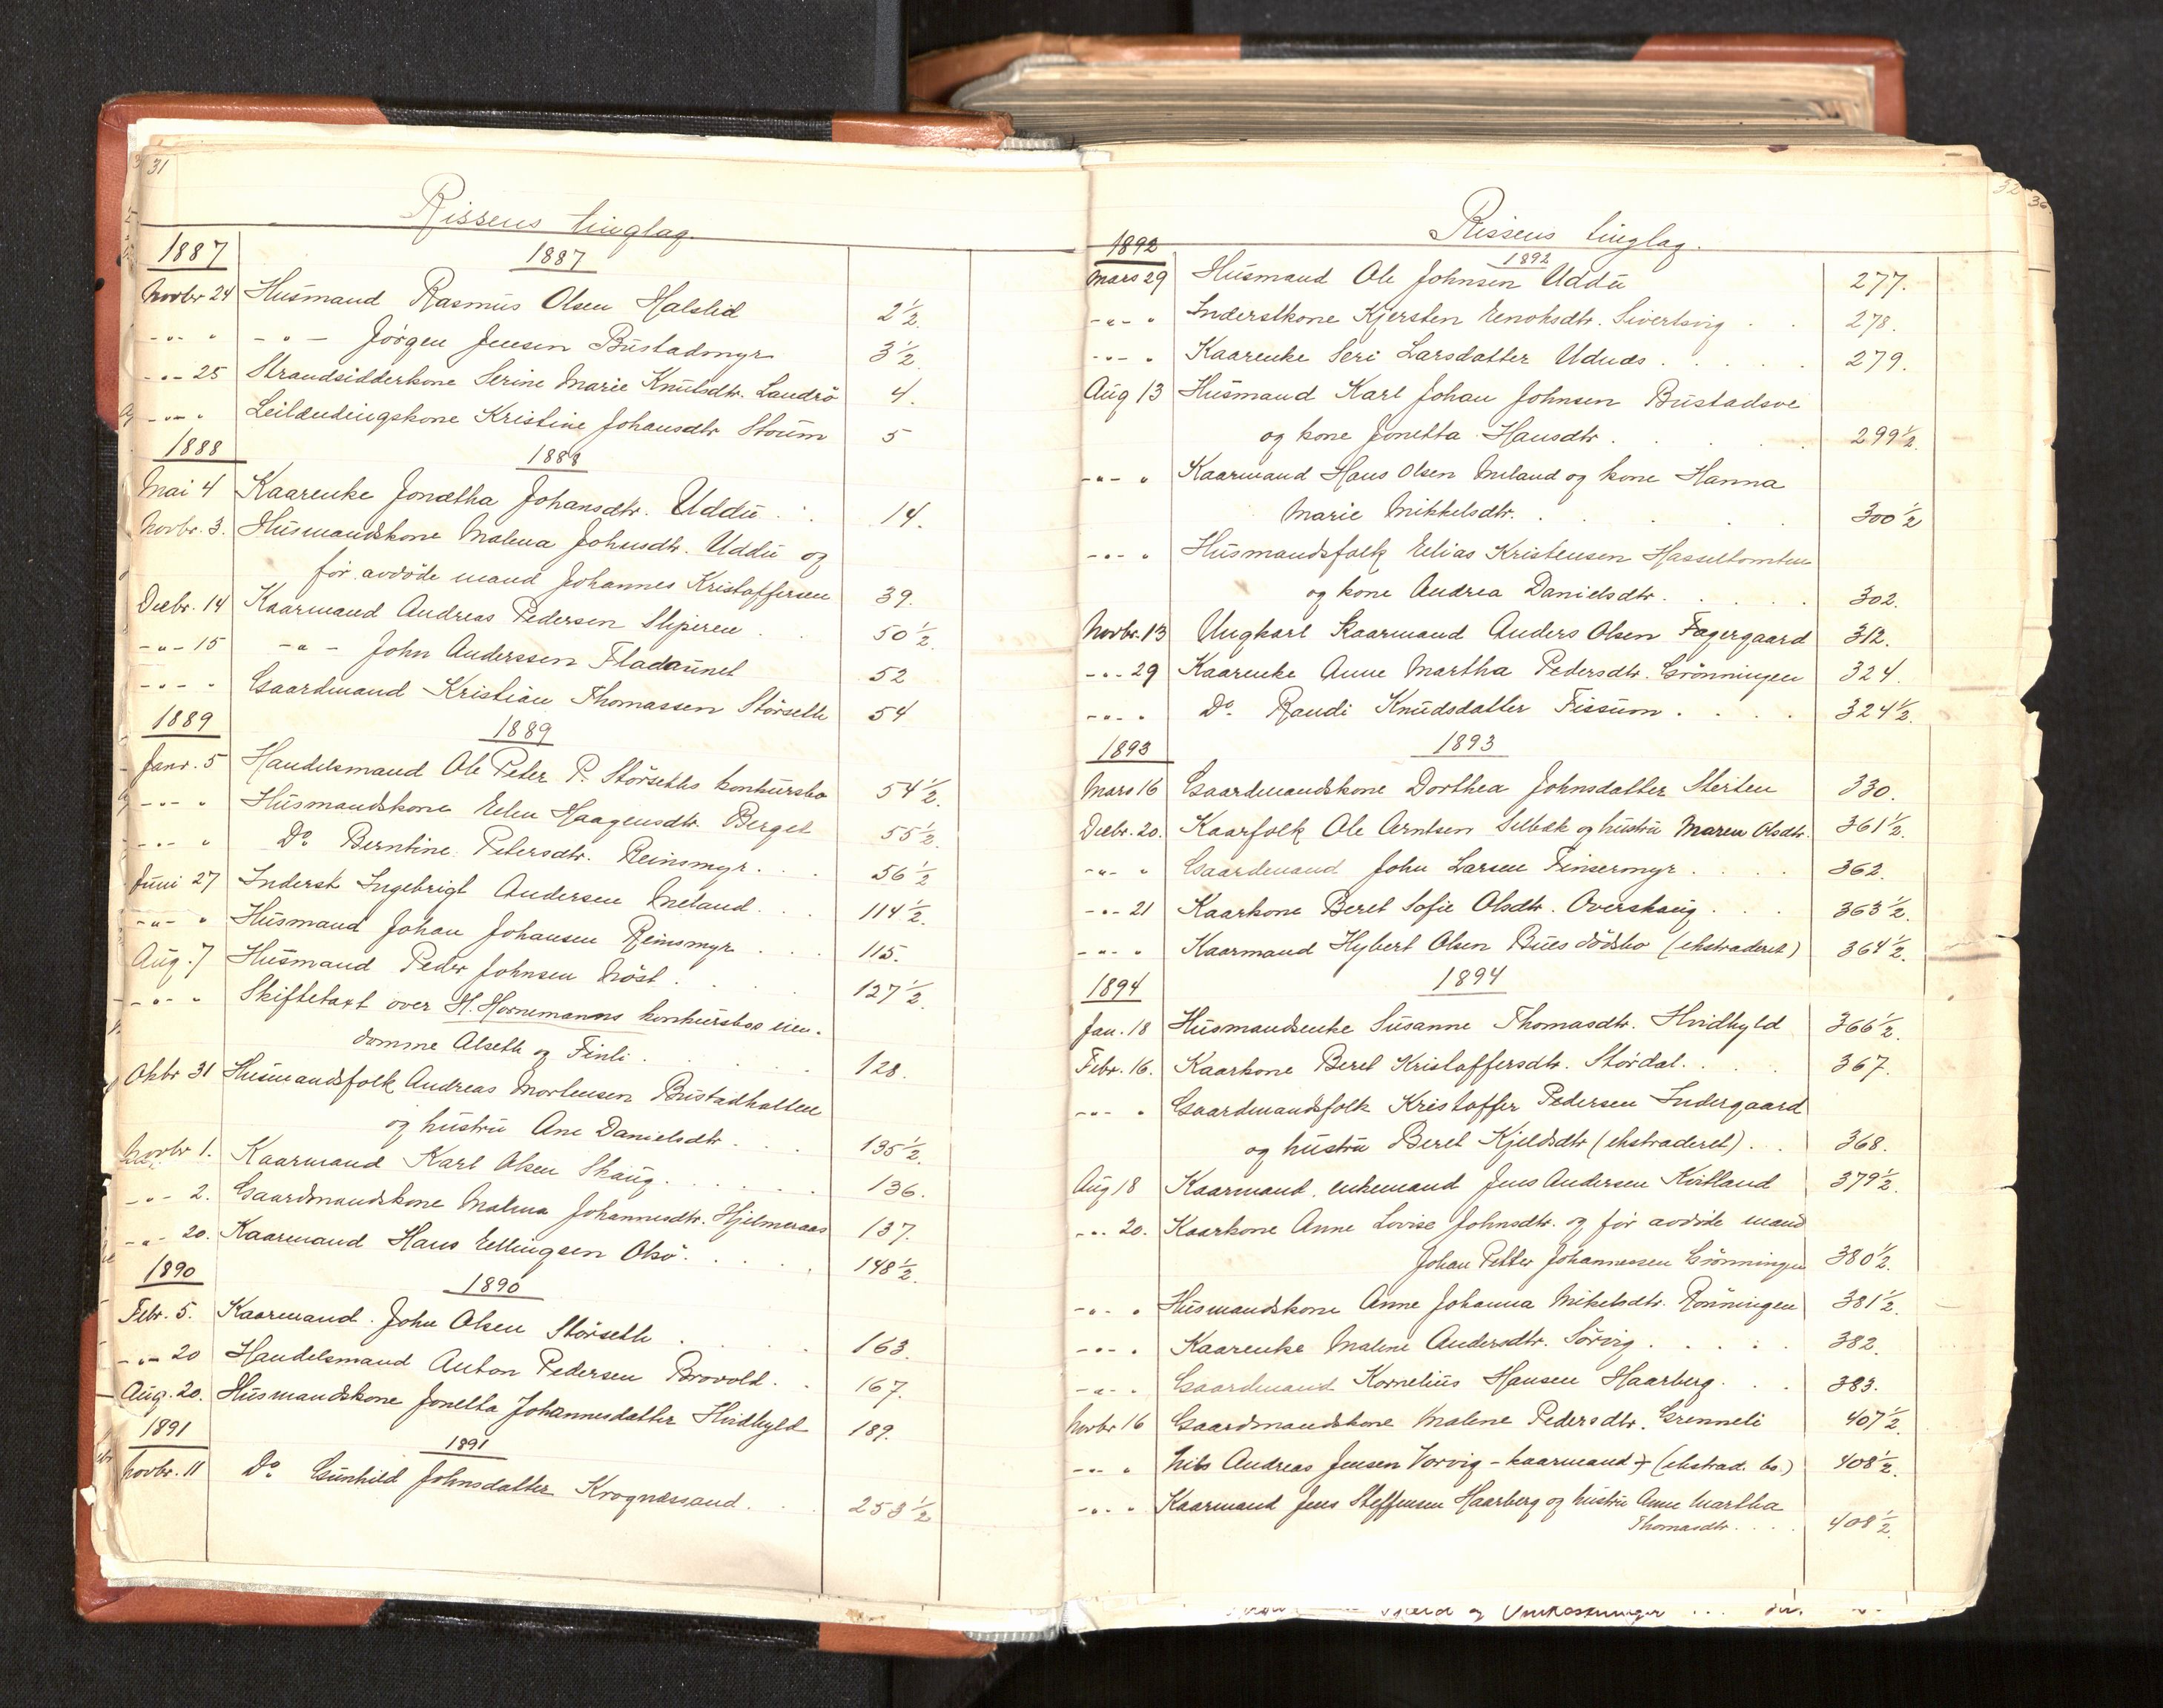 31
Rissens tinglag.
1887
1887
Novbr 24 Husmand Rasmus Olsen Halslid 2 1/2.
-"- " -"- Jörgen Jensen Bustadmyr 3 1/2.
-"- 25 Strandsidderkone Serine Marie Knutsdtr. Landrö 4.
-"- " Leilændingskone Kristine Johansdtr Stoum 5
1888
1888
Mai 4 Kaarenke Jonetha Johansdtr. Uddu . . 14.
Novbr. 3. Husmandskone Malena Johnsdtr. Uddu og
för avdöde mand Johannes Kristoffersen 39.
Decbr. 14 Kaarmand Andreas Pedersen Sliperen . . 50 1/2.
-"- 15 -"- John Anderssen Fladaunet 52
-"- " Gaardmand Kristian Thomassen Störseth 54
1889
1889
Janr. 5 Handelsmand Ole Peter P. Störseths konkursbo 54 1/2.
-"- " Husmandskone Elen Haagensdtr. Berget 55 1/2.
-"- " Do Berntine Petersdtr. Reinsmyr . . . 56 1/2
Juni 27 Inderst Ingebrigt Andersen Meland . . . 114 1/2.
-"- " Husmand Johan Johansen Reinsmyr . . . 115.
Aug. 7 Husmand Peder Johnsen Nöst . . . 127 1/2.
-"- " Skiftetaxt over H. Hornemanns konkursbos eien-
domme Alseth og Finli . . . 128.
Oktbr 31 Husmandsfolk Andreas Mortensen Bustadhallen
og hustru Ane Danielsdtr . . . 135 1/2.
Novbr 1. Kaarmand Karl Olsen Skaug . . . . . 136.
-"- 2. Gaardmandskone Malena Johannesdtr. Hjelmeraas 137.
-"- 20. Kaarmand Hans Ellingsen Olsö . . . . 148 1/2.
1890
1890
Febr. 5. Kaarmand John Olsen Störseth . . . 163.
-"- 20 Handelsmand Anton Pedersen Brovold . . 167.
Aug. 20. Husmandskone Jonetta Johannesdatter Hvidbyld 189.
1891
1891
Novbr. 11 Do Gunhild Johnsdatter Krognæssand . . . 253 1/2
32
36
Rissens tinglag.
1892
1892
Mars 29 Husmand Ole Johnsen Uddu 277.
-"- " Inderstkone Kjersten Enoksdtr. Sivertsvig . . 278.
-"- " Kaarenke Seri Larsdatter Ududs . . . . . 279.
Aug 13 Husmand Karl Johan Johnsen Bustadsve
og kone Jonetta Hansdtr. . . . . 299 1/2
-"- " Kaarmand Hans Olsen Meland og kone Hanna
Marie Mikkelsdtr. . . . . 300 1/2
-"- " Husmandsfolk Elias Kristensen Hasseltomten
og kone Andrea Danielsdtr. . . . . 302.
Novbr. 13 Ungkarl Kaarmand Anders Olsen Fagergaard 312.
-"- 29 Kaarenke Anne Martha Pedersdtr. Grönningen 324.
-"- " Do Randi Knudsdatter Fissum . . . . 324 1/2.
1893
1893
Mars 16 Gaardmandskone Dorthea Johnsdatter Sterten 330.
Decbr. 20. Kaarfolk Ole Arntsen Selbæk og hustru Maren Olsdtr. 361 1/2.
-"- " Gaardmand John Larsen Finsermyr . . . . 362.
-"- 21 Kaarkone Beret Sofie Olsdtr. Overskaug . . . 363 1/2.
-"- " Kaarmand Hybert Olsen Bues dödsbo (ekstraderet) 364 1/2.
1894
1894
Jan. 18 Husmandsenke Susanne Thomasdtr. Hvidbyld 366 1/2.
Febr. 16. Kaarkone Beret Kristoffersdtr. Stordal . . . . 367.
-"- " Gaardmandsfolk Kristoffer Pedersen Indergaard
og hustru Beret Kjeldsdtr (ekstraderet) . . . 368.
Aug 18 Kaarmand, enkemand Jens Andersen Kvithland 379 1/2.
-"- 20. Kaarkone Anne Lovise Johnsdtr. og för avdöde mand
Johan Petter Johannessen Grönningen 380 1/2.
-"- " Husmandskone Anne Johanna Mikelsdtr. Rönningen 381 1/2.
-"- " Kaarenke Malene Andersdtr. Sörvig . . . . . 382.
-"- " Gaardmand Kornelius Hansen Haarberg . . . 383.
Novbr 16 Gaardmandskone Malene Pedersdtr. Grenneli 407 1/2.
-"- " Nils Andreas Jensen Vorvig - kaarmand + (ekstrad. bo.) 408 1/2.
-"- " Kaarmand Jens Steffensen Haarberg og hustru Anne Martha
Thomasdtr. . . . . 408 1/2.